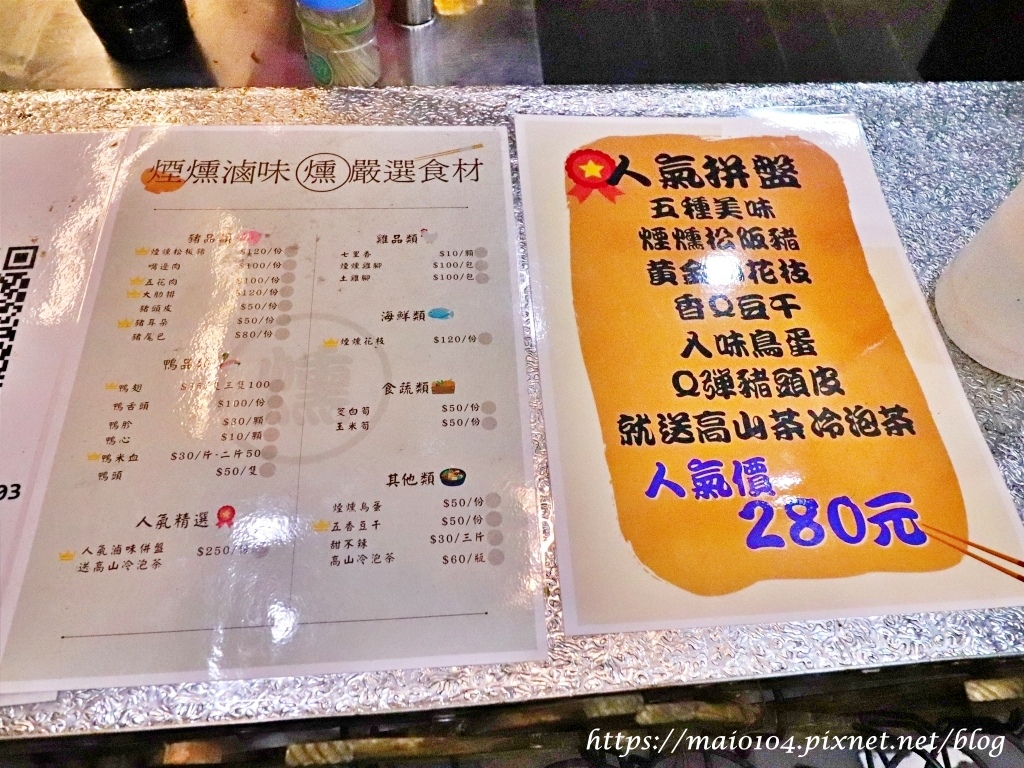 煙燻滷味 燻 嚴選食材
豬品類
煙燻松板豬 $120/份
嘴邊肉 $100/份
五花肉 $100/份
大肋排 $120/份
豬頭皮 $50/份
豬耳朵 $50/份
豬尾巴 $80/份
鴨品
鴨翅 三隻100
鴨舌頭 $100/份
鴨胗 $30/顆
鴨心 $10/顆
鴨米血 $30/片·二片50
鴨頭 $50/隻
人氣精選
人氣滷味併盤 $250/份
送高山冷泡茶
雞品類
七里香 $10/顆
煙燻雞腳 $100/包
土雞腳 $100/包
海鮮類
煙燻花枝 $120/份
食蔬類
茭白筍 $50/份
玉米筍 $50/份
其他類
煙燻鳥蛋 $50/份
五香豆干 $50/份
甜不辣 $30/三片
高山冷泡茶 $60/瓶
人氣拼盤
五種美味
煙燻松阪豬
黃金 花枝
香Q豆干
入味鳥蛋
Q彈豬頭皮
就送高山茶冷泡茶
人氣價
280元
93
https://maio104.pixnet.net/blog